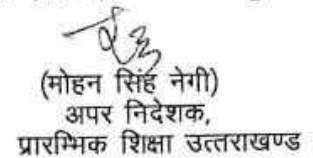 (मोहन सिंह नेगी)
अपर निदेशक,
प्रारम्भिक शिक्षा उत्तराखण्ड